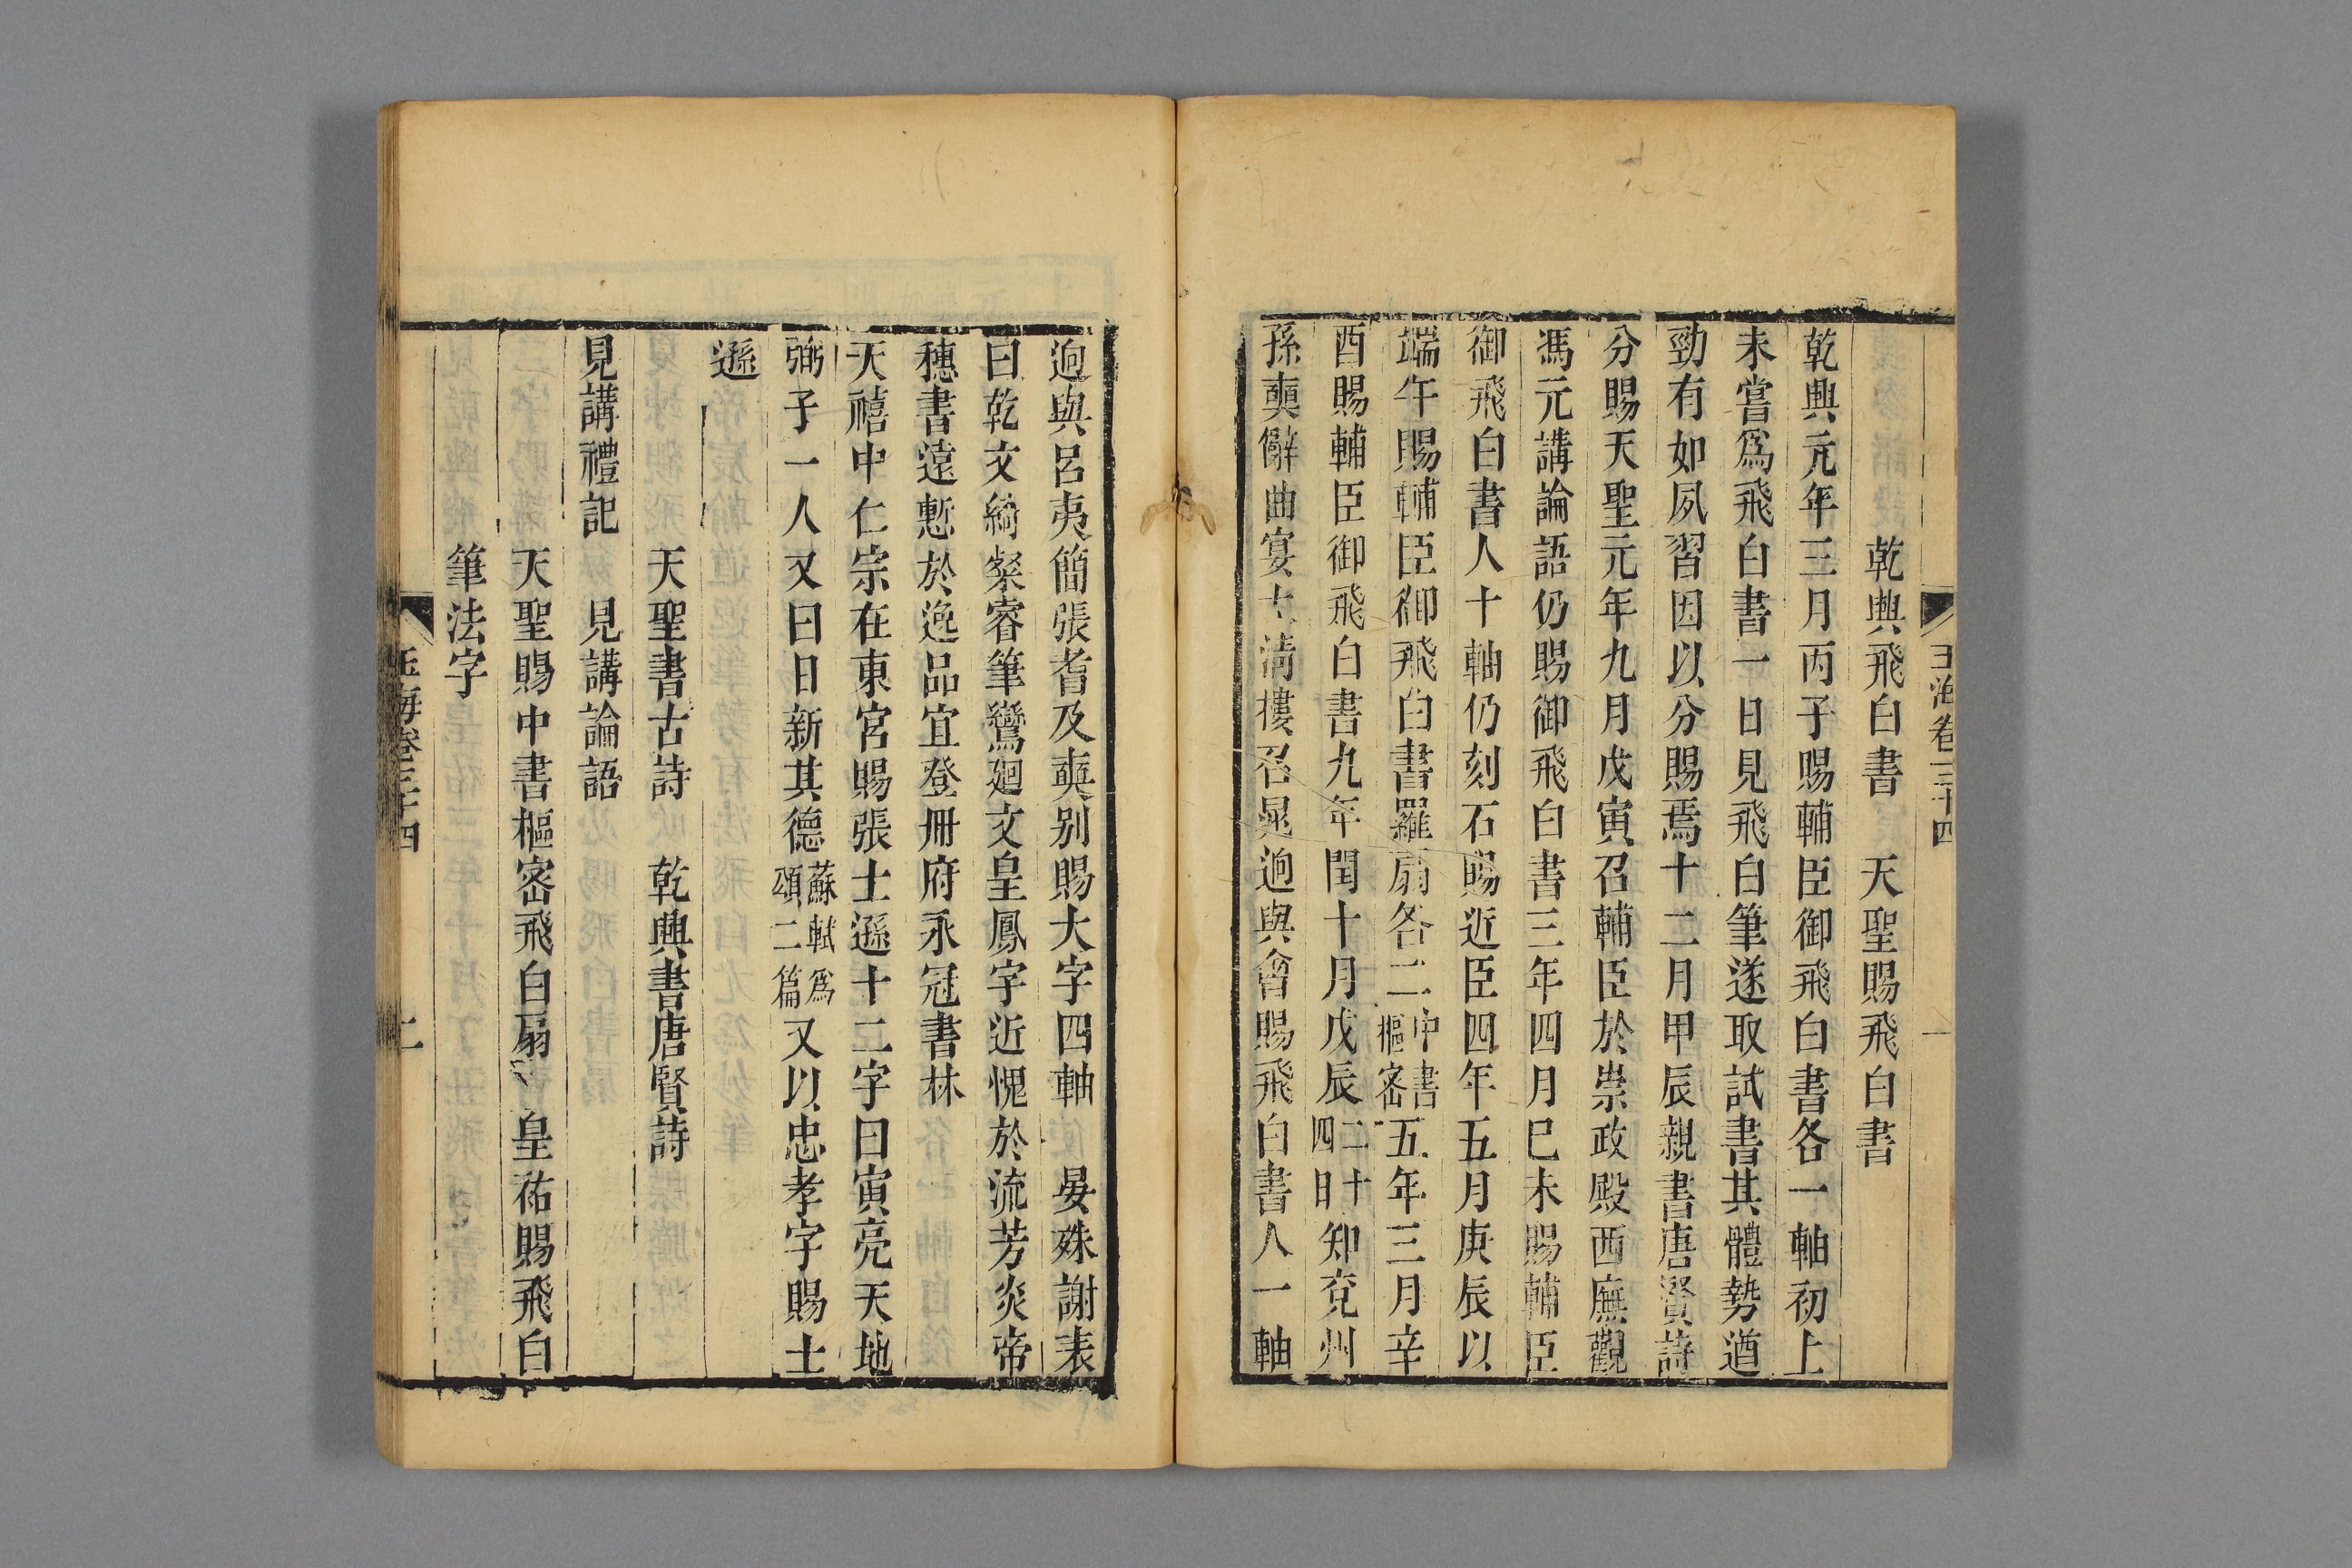 玉海卷三十四 一
乾興飛白書 天聖賜飛白書
乾興元年三月丙子賜輔臣御飛白書各一軸初上
未嘗爲飛白書一日見飛白筆遂取試書其體勢遒
勁有如夙習因以分賜焉十二月甲辰親書唐賢詩
分賜天聖元年九月戊寅召輔臣於崇政殿西廡觀
馮元講論語仍賜御飛白書三年四月巳未賜輔臣
御飛白書人十軸仍刻石賜近臣四年五月庚辰以
端午賜輔臣御飛白書羅扇各二中書樞密五年三月辛
酉賜輔臣御飛白書九年閏十月戊辰二十四日知兖州
孫奭辭曲宴太淸樓召晁逈與會賜飛白書人一軸
逈與呂夷簡張耆及奭別賜大字四軸 晏殊謝表
曰乾文綺粲睿筆鸞廻文皇鳳字近愧於流芳炎帝
穗書遠慙於逸品宜登冊府永冠書林
天禧中仁宗在東宮賜張士遜十二字曰寅亮天地
弼予一人又曰日新其德蘇軾爲頌二篇又以忠孝字賜士
遜
天聖書古詩 乾興書唐賢詩
見講禮記 見講論語
天聖賜中書樞密飛白扇 皇祐賜飛白
筆法字
玉海卷三十四 二